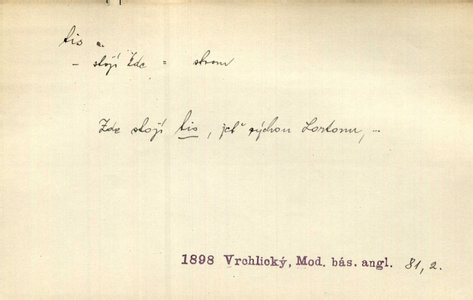 tis
– stojí zde = strom
Zde stojí tis, jenž pýchou Lortonu, ...
1898 Vrchlický, Mod. bás. angl. 81, 2.